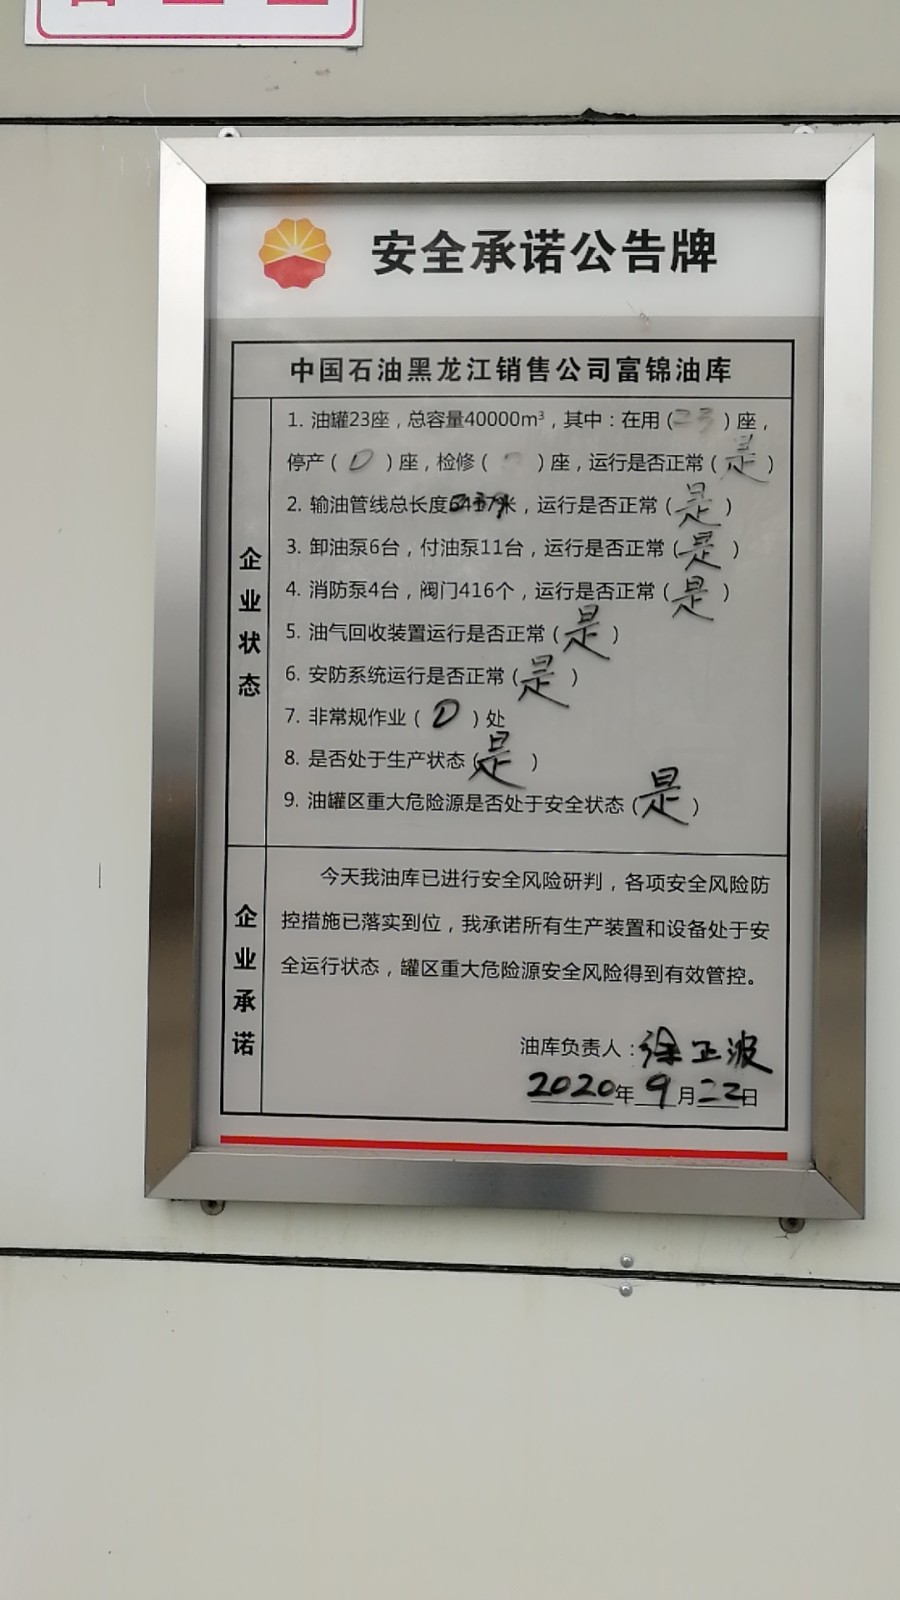 安全承诺公告牌
中国石油黑龙江销售公司富锦油库
企业状态
1. 油罐23座，总容量40000m³，其中：在用（23）座，
停产（0）座，检修（ ）座，运行是否正常（是）
2. 输油管线总长度米，运行是否正常（是）
3. 卸油泵6台，付油泵11台，运行是否正常（是）
4. 消防泵4台，阀门416个，运行是否正常（是）
5. 油气回收装置运行是否正常（是）
6. 安防系统运行是否正常（是）
7. 非常规作业（0）处
8. 是否处于生产状态（是）
9. 油罐区重大危险源是否处于安全状态（是）
企业承诺
今天我油库已进行安全风险研判，各项安全风险防
控措施已落实到位，我承诺所有生产装置和设备处于安
全运行状态，罐区重大危险源安全风险得到有效管控。
油库负责人：徐正波
2020年9月22日